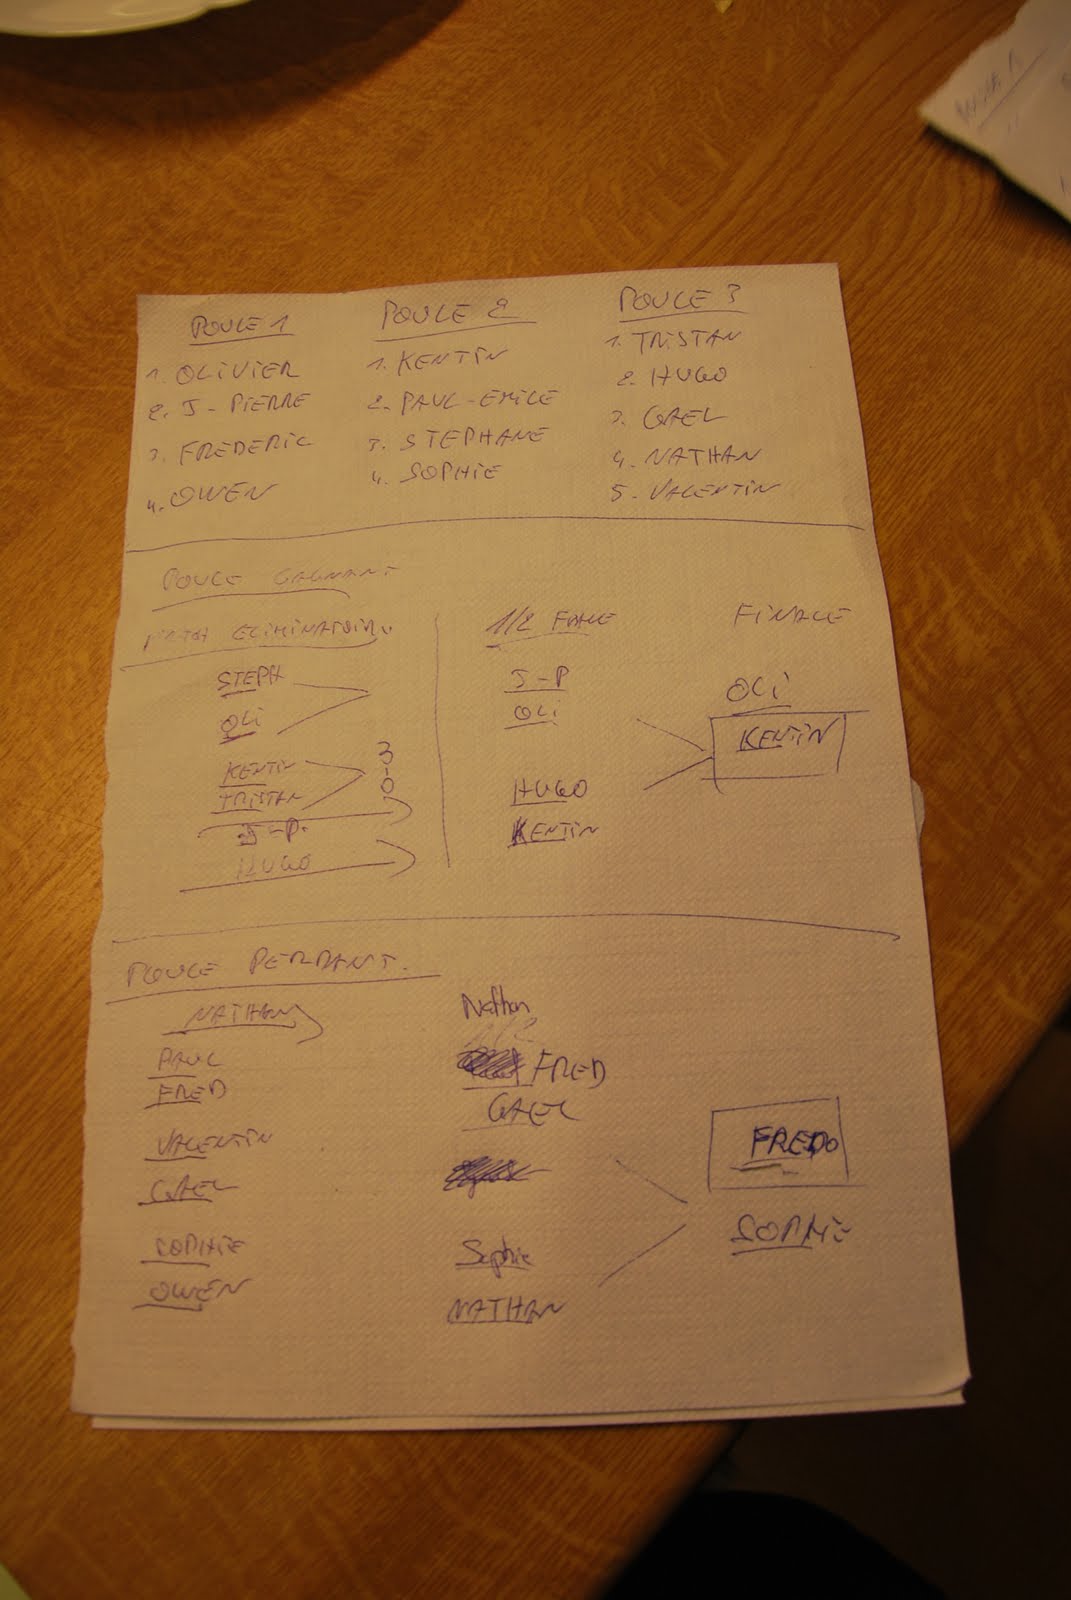 POULE 1
1. OLIVIER
2. J-PIERRE
3. FREDERIC
4. OWEN
POULE 2
1. KENTIN
2. PAUL-EMILE
3. STEPHANE
4. SOPHIE
POULE 3
1. TRISTAN
2. HUGO
3. GAEL
4. NATHAN
5. VALENTIN
POULE GAGNANT
MATCH ELIMINATOIRE
STEPH
OLI
KENTIN
TRISTAN
3-0
J-P.
HUGO
1/2 FINALE
J-P
OLI
HUGO
KENTIN
FINALE
OLI
KENTIN
POULE PERDANT.
NATHAN
PAUL
FRED
VALENTIN
GAEL
SOPHIE
OWEN
Nathan
1/2
FRED
GAEL
Sophie
NATHAN
FREDO
SOPHIE